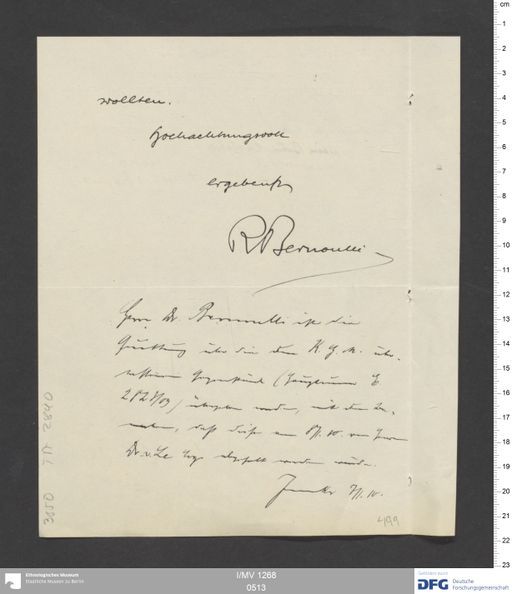 wollten.
Hochachtungsvoll
ergebenst
R Bernoulli
Herrn Dr Bernoulli ist die
Quittung über die dem K. G. M. über-
2823/09) übergeben worden, mit dem Be-
merken, daß diese am 8/1. 10. von Herrn
Dr. v. Le Coq abgeholt werden würde.
7/1. 10.
499
3050 IA 2840
I/MV 1268
0513
Ethnologisches Museum
Staatliche Museen zu Berlin
DFG Deutsche
Forschungsgemeinschaft
cm
1
2
3
4
5
6
7
8
9
10
11
12
13
14
15
16
17
18
19
20
21
22
23